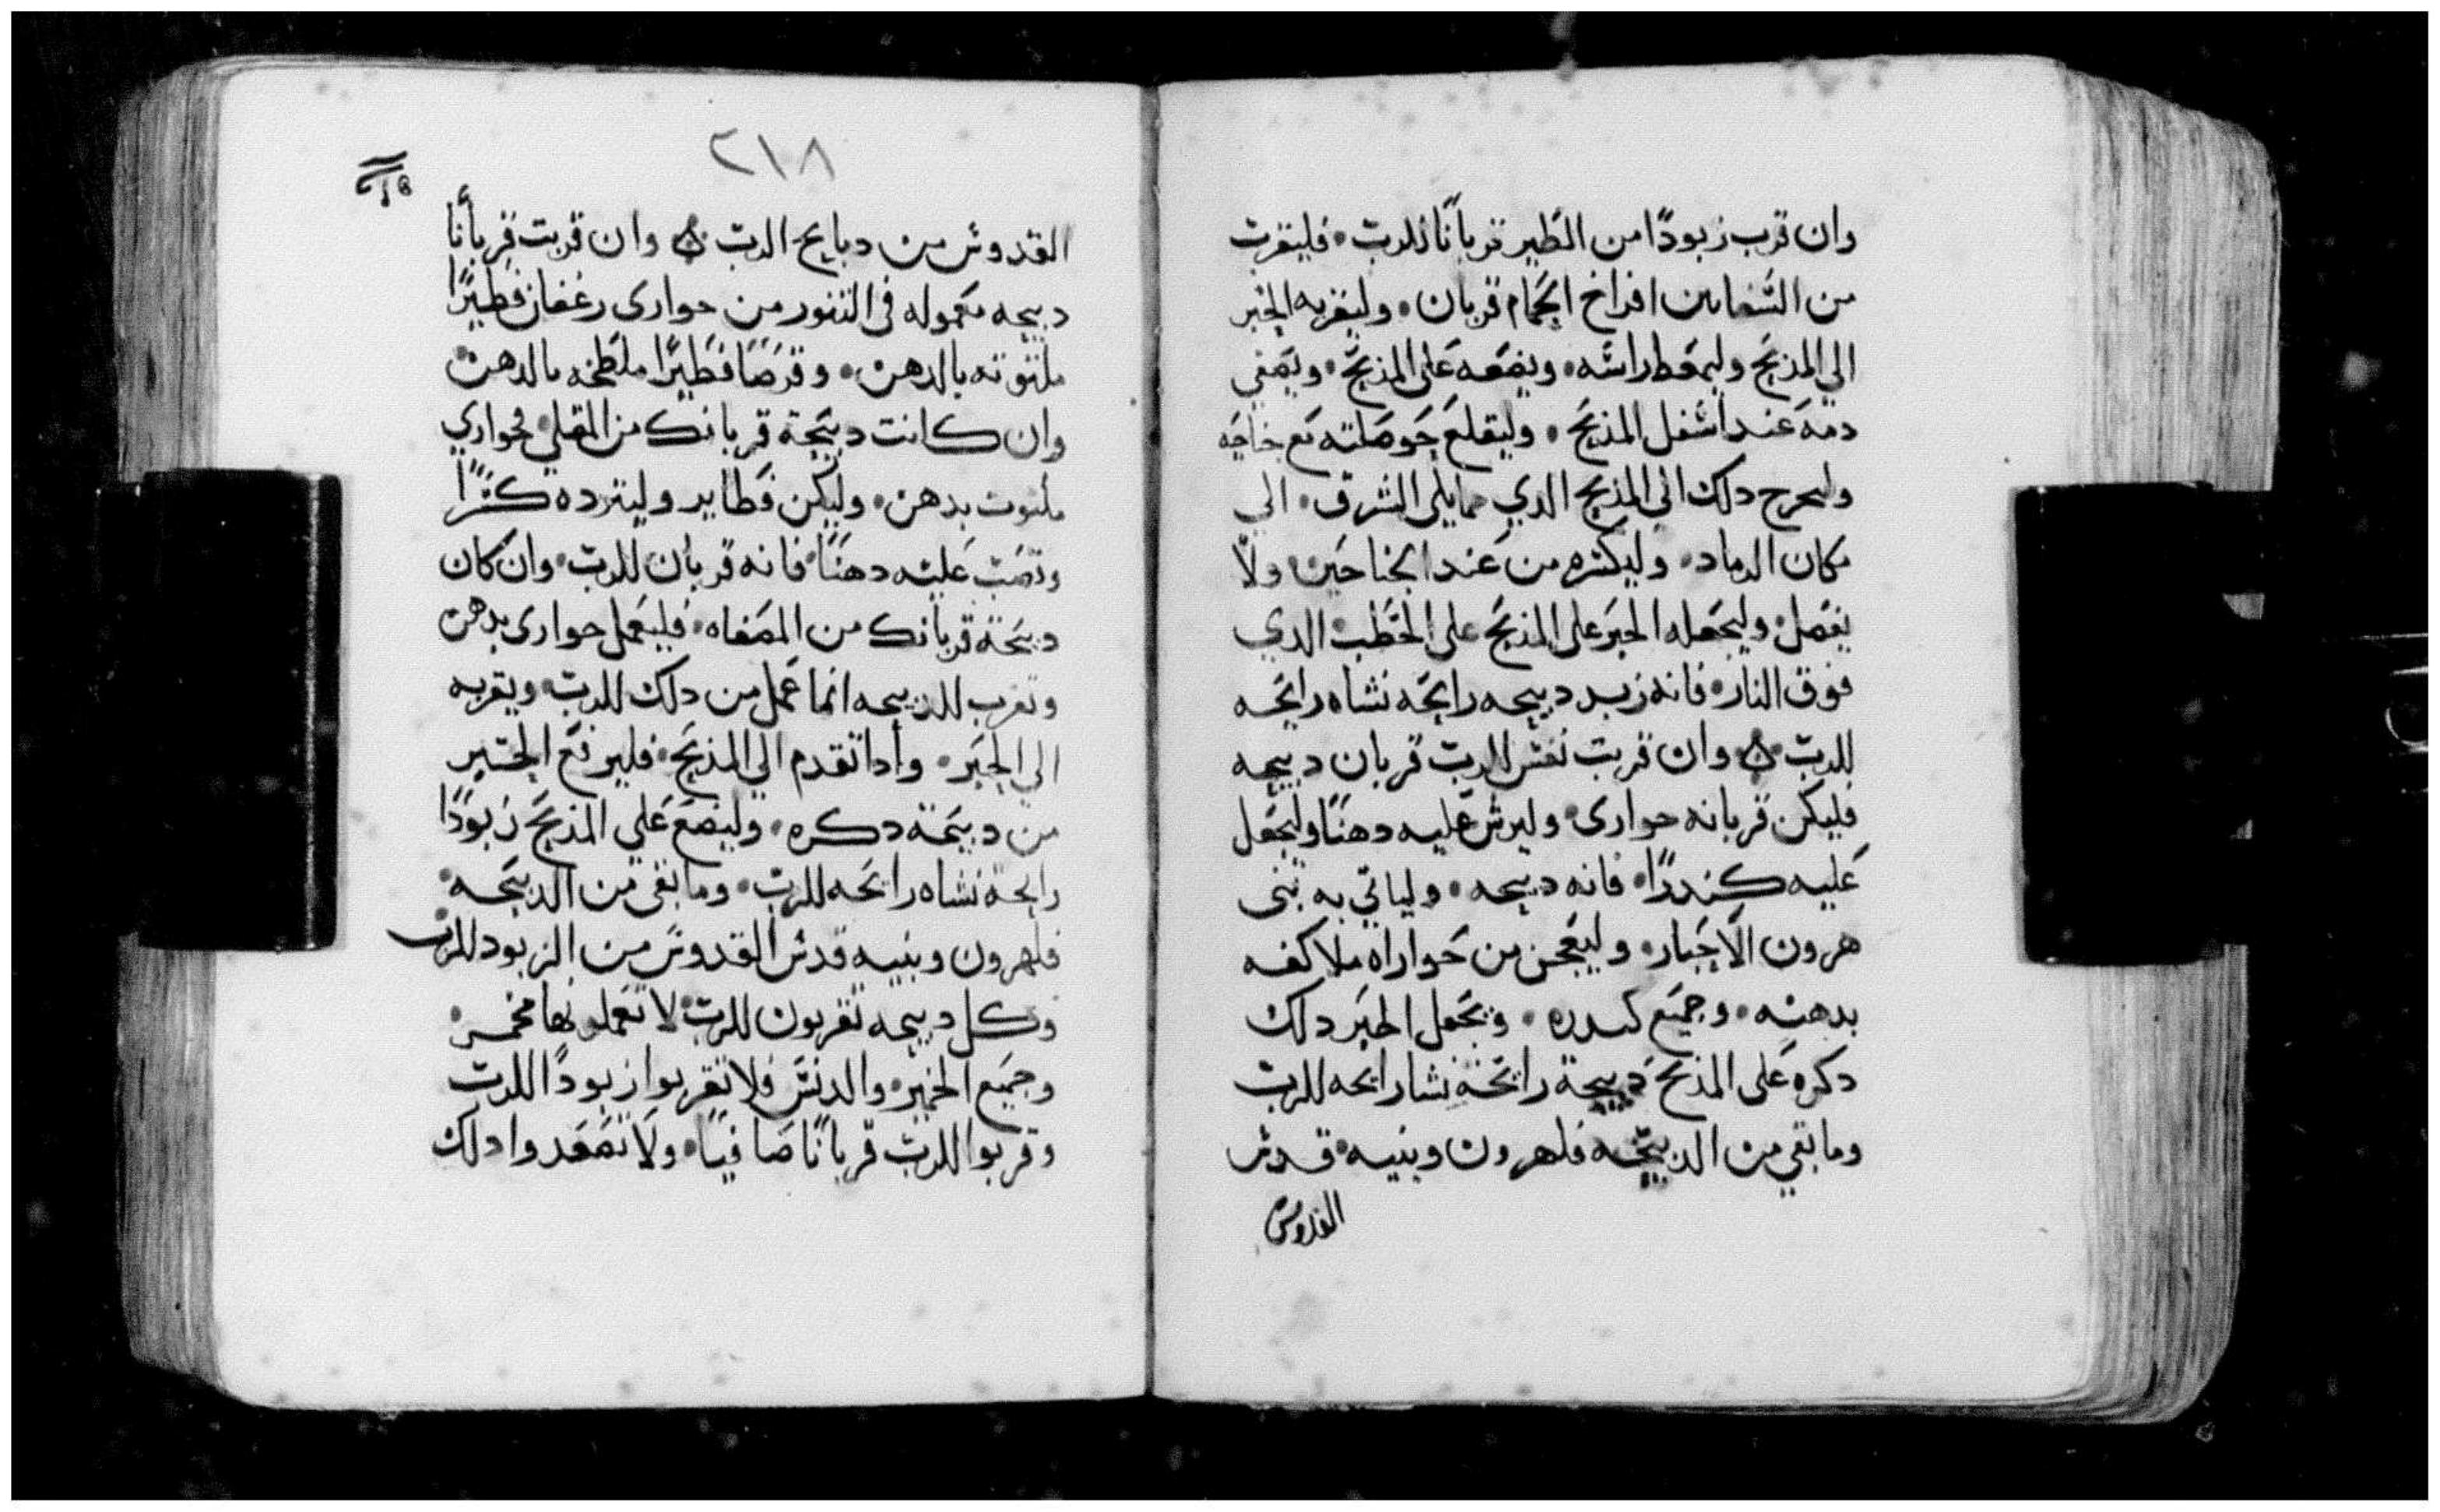 وان قرب زبودًا من الطير قربانًا للرب • فليقرب
من الشفانين افراخ الحمام قربان • وليقربه الحبر
الي المذبح وليمعط راسه • ويضعه على المذبح • ويصفي
دمه عند اسفل المذبح • وليقلع حوصلته مع جناحيه
وليخرج دلك الى المذبح الدي مما يلى الشرق • الي
مكان الرماد • وليكسره من عند الجناحين • ولا
يفصل • وليجعله الحبر على المذبح على الحطب الدي
فوق النار • فانه زبد دبيحه رايحه نشاه رايحه
للرب • وان قربت نفس للرب قربان دبيحه
فليكن قربانه حوارى • وليرش عليه دهنًا وليجعل
عليه كندرًا • فانه دبيحه • ولياتي به بنى
هرون الاحبار • وليعجن من حواراه ملا كفه
بدهنه • وجميع كندره • ويجعل الحبر دلك
دكره على المذبح دبيحة رايحة نشا رايحه للرب
وما بقي من الدبيحه فلهرون وبنيه • قدس
القدوس
٢١٨
القدوس من دبايح الرب • وان قربت قربانًا
دبيحه معموله فى التنور من حوارى رغفان فطيرًا
ملتوته بالدهن • وقرصًا فطيرًا ملطخه بالدهن
وان كانت دبيحة قربانك من المقلي فحواري
ملتوت بدهن • وليكن فطاير وليترده كسرًا
وتصب عليه دهنًا • فانه قربان للرب • وان كان
دبيحة قربانك من المصفاه • فليعمل حوارى بدهن
وتقرب الدبيحه انما عمل من دلك للرب • ويقربه
الي الحبر • وادا تقدم الي المذبح • فليرفع الحبر
من دبيحته دكره • وليضع علي المذبح زبودًا
رايحة نشاه رايحه للرب • وما بقى من الدبيحه •
فلهرون وبنيه قدس القدوس من الزبود للرب
وكل دبيحه تقربون للرب • لا تعملونها مخمره
وجميع الخمير • والدنس فلا تقربوا زبودًا للرب
وقربوا للرب قربانًا صافيًا • ولا تصعدوا دلك